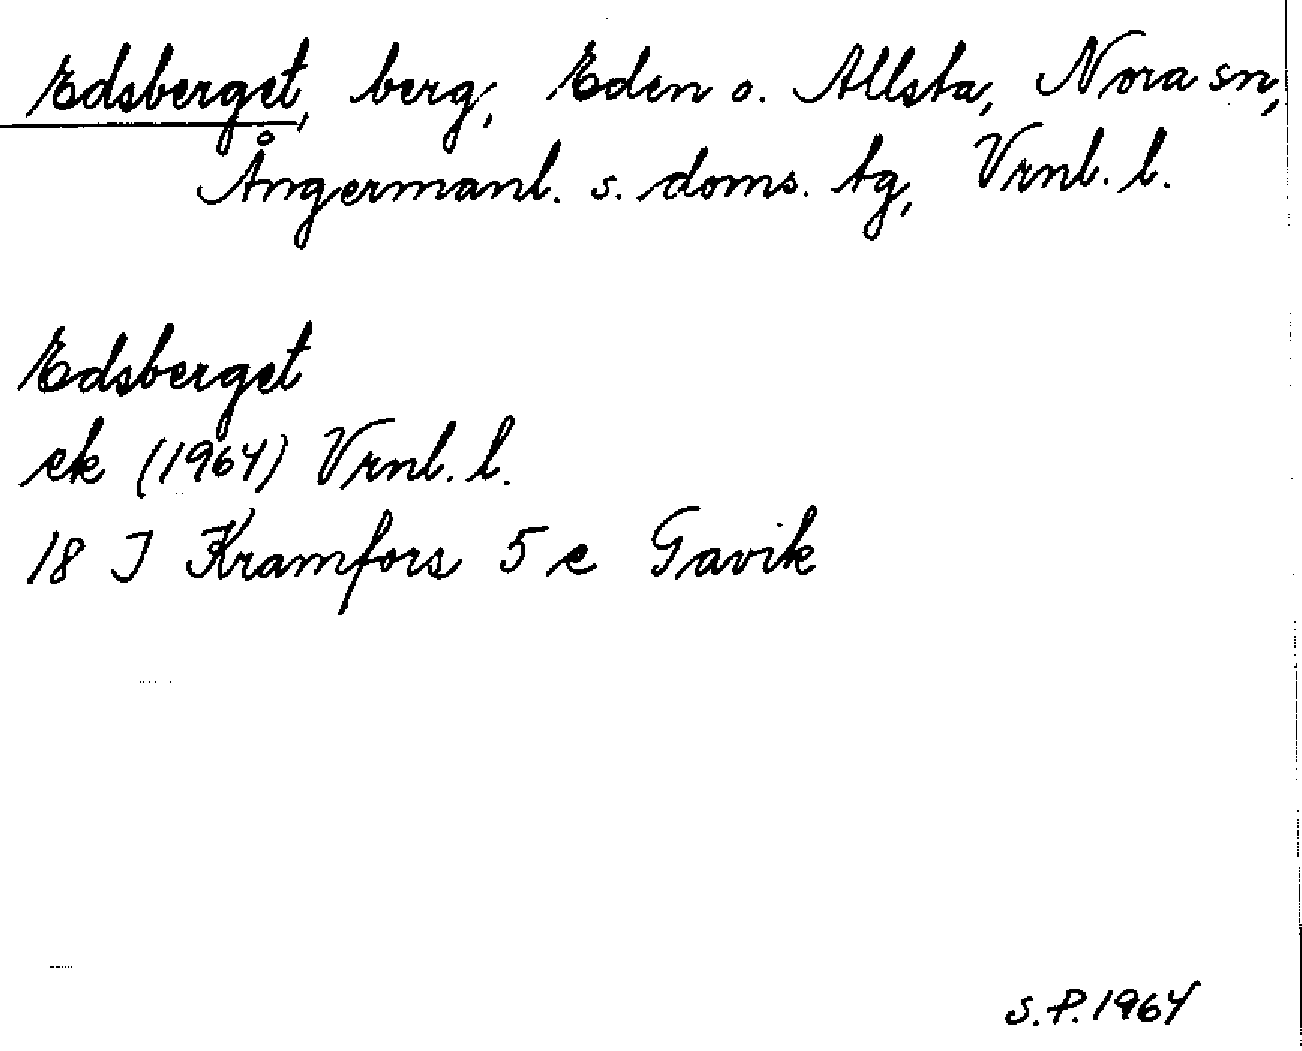 Edsberget, berg, Eden o. Allsta, Nora sn,
Ångermanl. s. doms. tg, Vrnl. l.
Edsberget
ek (1964) Vrnl. l.
18 J Kramfors 5 e Gavik
S.P. 1964